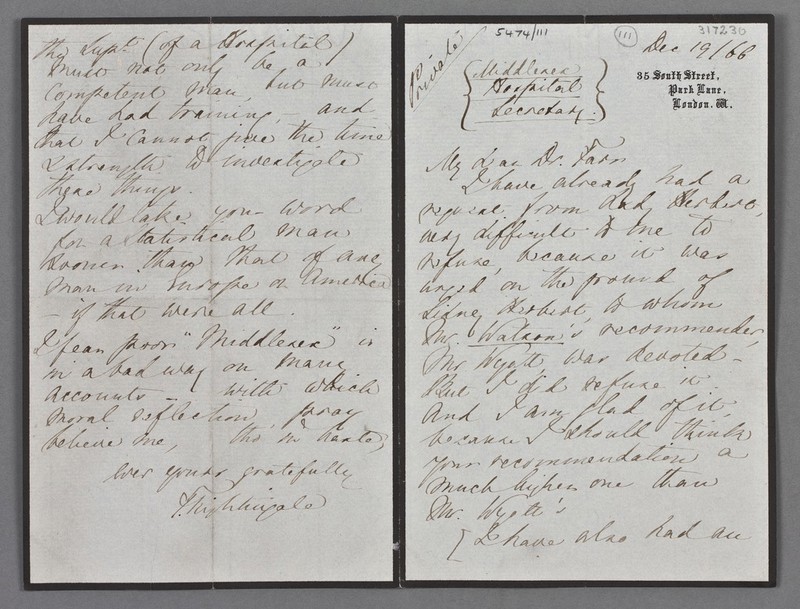 Private
5474/111
(111)
317230
Dec 19/66
35 South Street,
Park Lane,
London. W.
{Middlesex
Hospital
Secretary.}
My dear Dr. Farr
I have already had a
request from Lady Herbert,
very difficult to me to
refuse, because it was
urged on the ground of
Sidney Herbert, to whom
Mr. Watson's recommender,
Mr Wyatt, was devoted -
But I did refuse it.
And I am glad of it,
because I should think
your recommendation a
much higher one than
Mr. Wyatt's
[I have also had an
the Supt. (of a Hospital)
must not only be a
competent man, but must
have had training, and
that I cannot give the time
& strength to investigate
these things.
I would take your word
for a statistical man
sooner than that of any
man in Europe or America
- if that were all.
I fear poor "Middlesex" is
in a bad way on many
accounts - With which
moral reflection, pray
believe me, tho' in haste,
ever yours gratefully
F. Nightingale